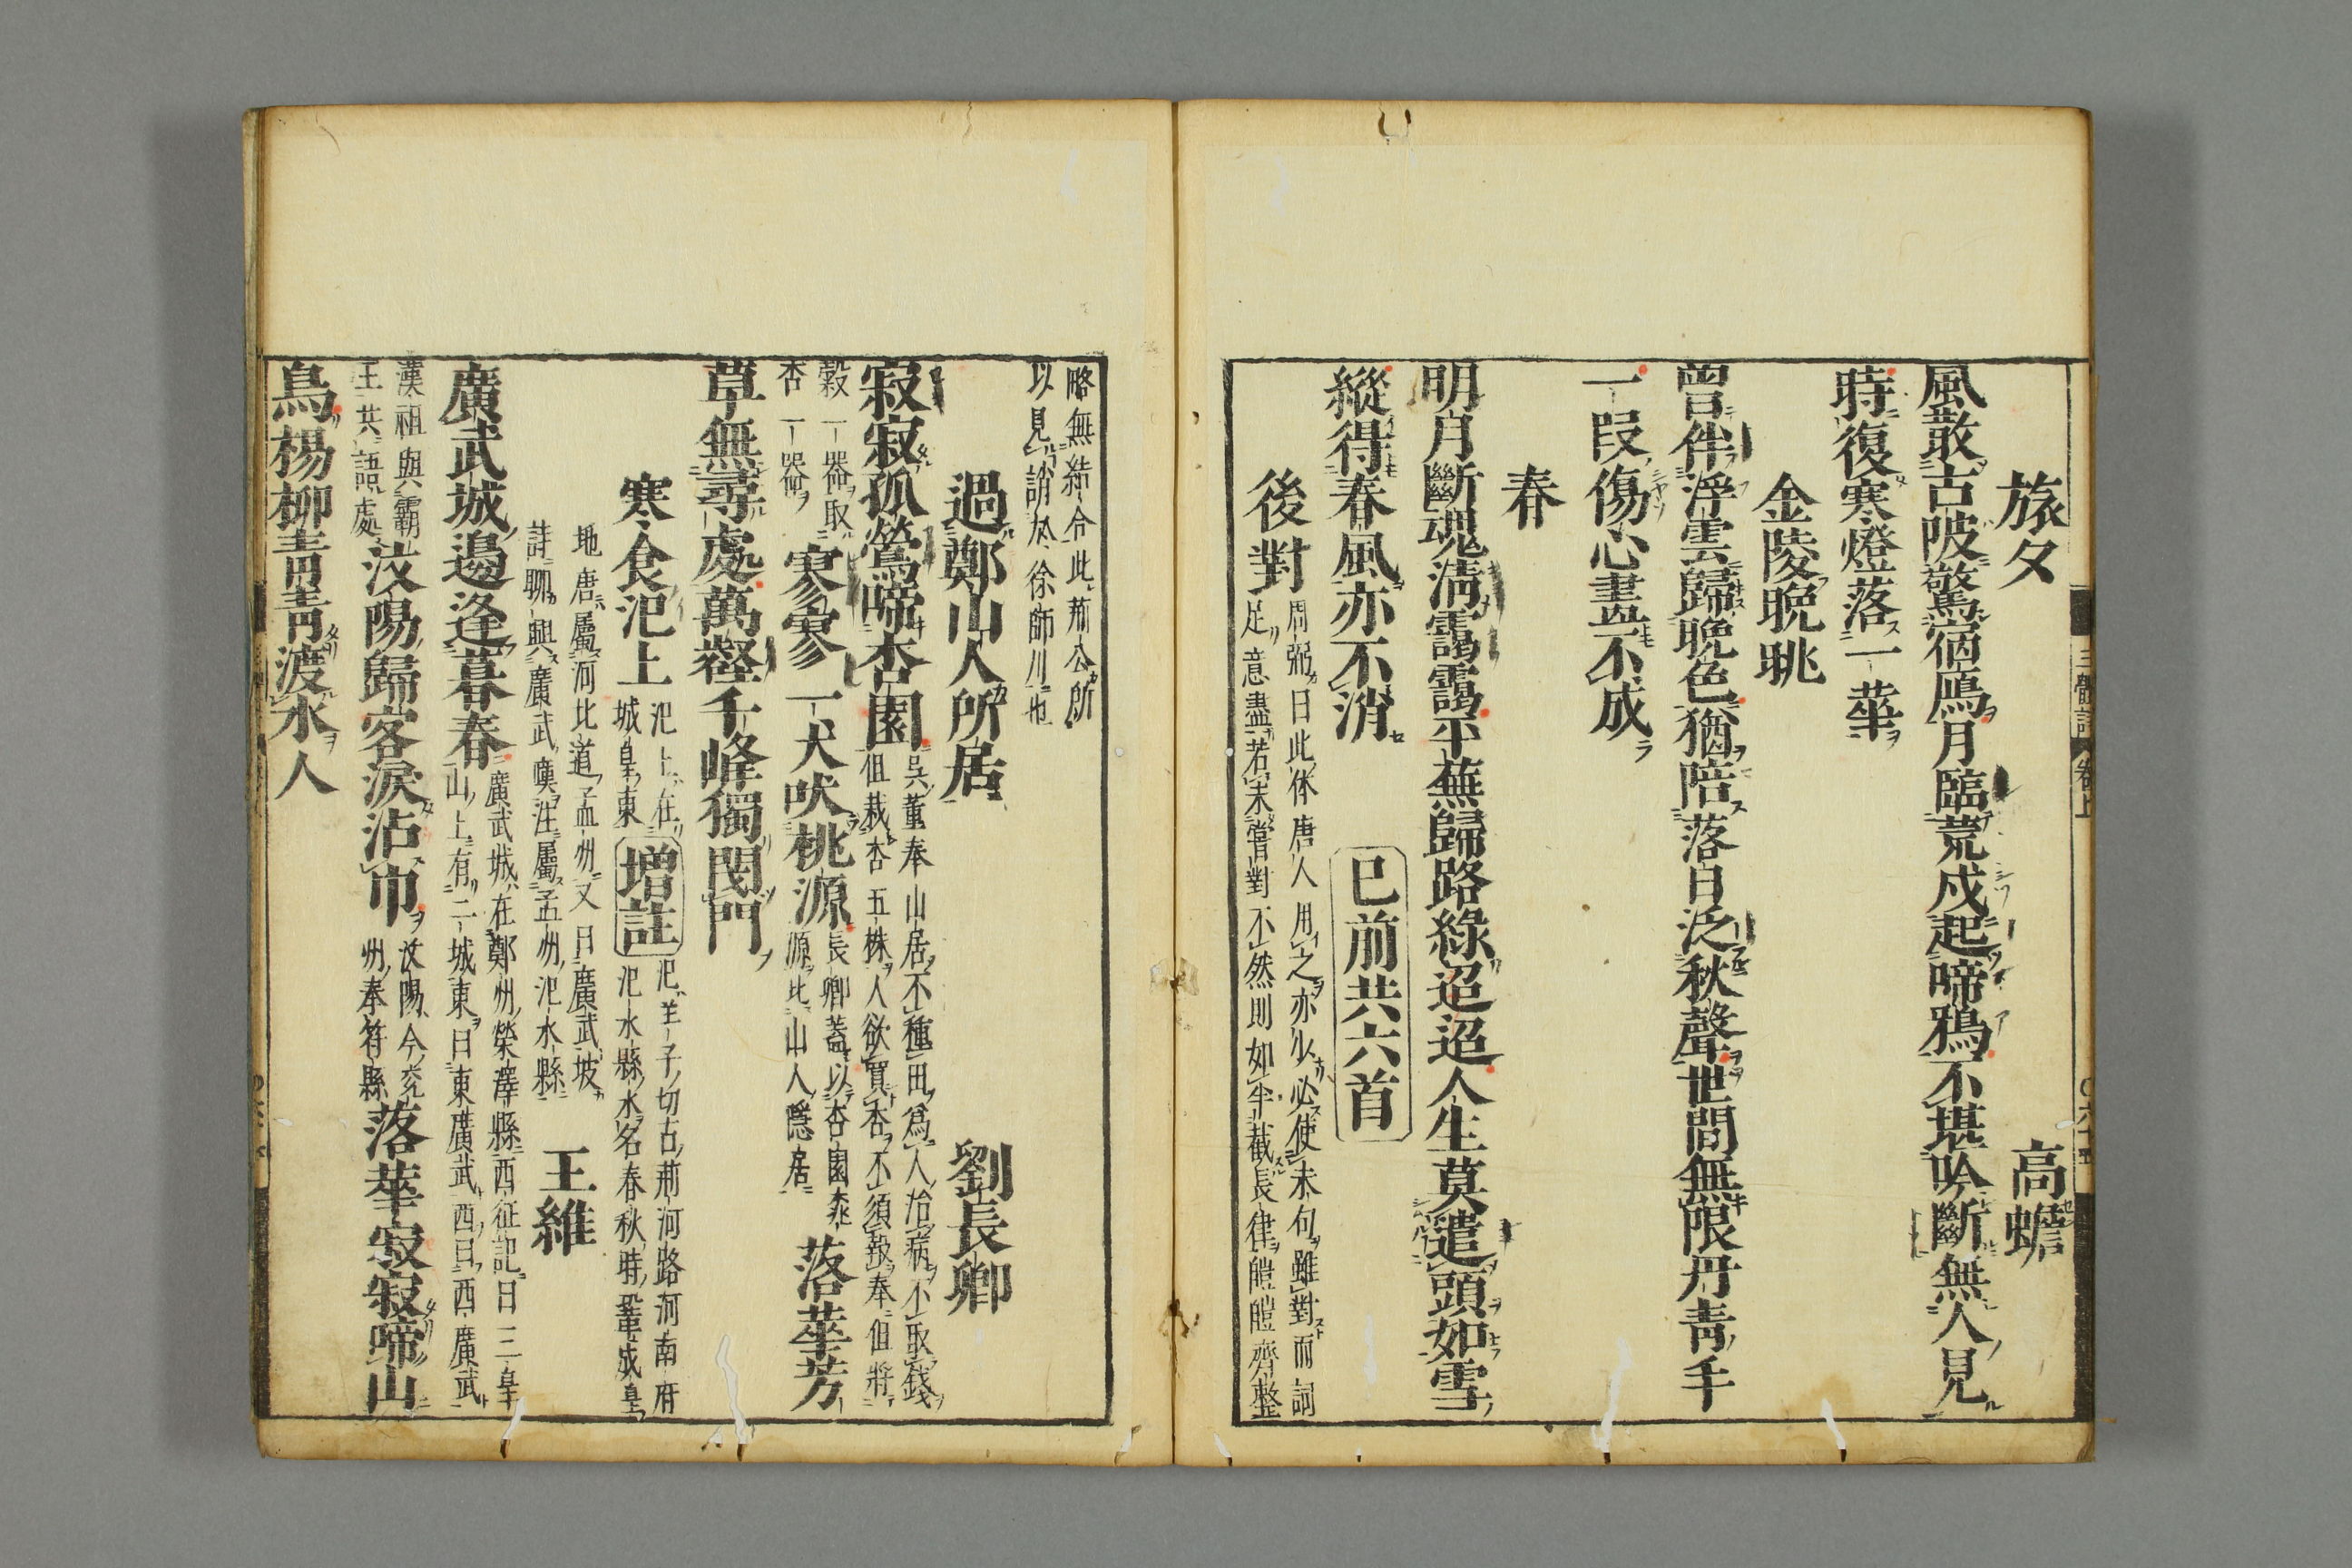 旅夕　高蟾
風散古陂驚宿鴈月臨荒戍起啼鴉不堪吟斷無人見
時復寒燈落一華
金陵晩眺
曾伴浮雲歸晩色猶陪落日泛秋聲世間無限丹青手
一叚傷心畫不成
春
明月斷魂淸靄靄平蕪歸路綠迢迢人生莫遣頭如雪
縱得春風亦不消　已前共六首
後對
周弼曰此体唐人用之亦少必使末句雖對而詞
足意盡若未嘗對不然則如半截長律皚皚齊整
略無結合此荊公所
以見誚於徐師川也
過鄭山人所居　劉長卿
寂寂孤鶯啼杏園
呉董奉山居不種田爲人治病不取錢
但栽杏五株人欲買杏不須報奉但將
穀一器取
杏一器
寥寥一犬吠桃源
長卿蓋以杏園桃
源比山人隱居
落華芳
草無尋處萬壑千峰獨閉門
寒食汜上
汜上在
城皐東
增註
汜羊子切古荊河路河南府
汜水縣水名春秋時鞏成皐
地唐屬河北道孟州又曰廣武坡
詳聊興廣武嘆注屬孟州汜水縣
王維
廣武城邊逢暮春
廣武城在鄭州滎澤縣西征記曰三皐
山上有二城東曰東廣武西曰西廣武
漢祖與霸
王共語處
汶陽歸客淚沾巾
汶陽今兗
州奉符縣
落華寂寂啼山
鳥楊柳靑靑渡水人
三體詩　卷上